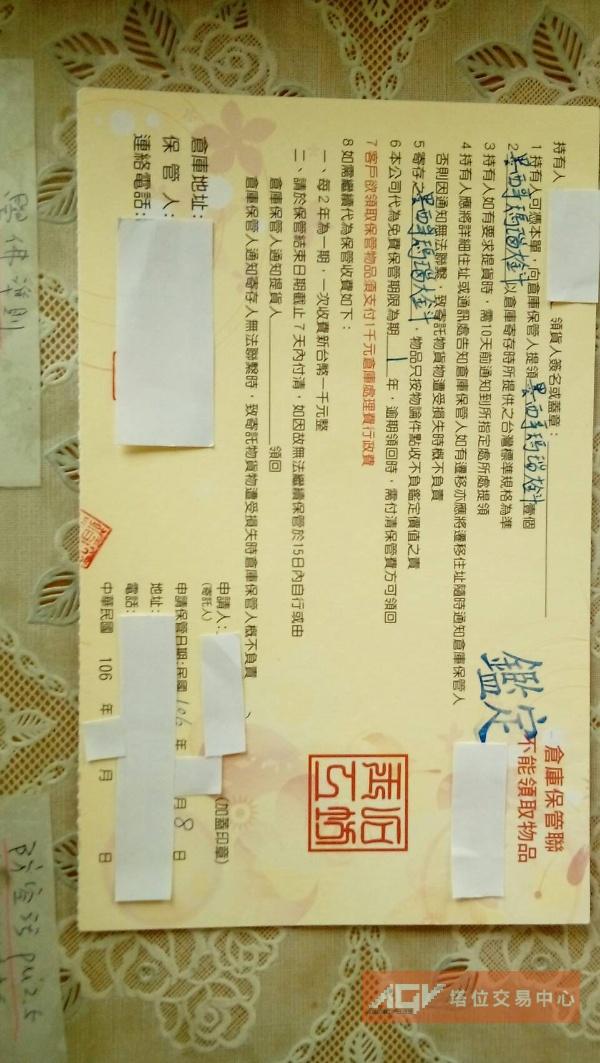 倉庫保管聯
不能領取物品
鑑定
持有人 領貨人簽名或蓋章：
1 持有人可憑本單，向倉庫保管人提領墨西哥瑪瑙大斜壹個
2 墨西哥瑪瑙大斜以倉庫寄存時所提供之台灣標準規格為準
3 持有人如有要求提貨時，需10天前通知到所指定處所處提領
4 持有人應將詳細住址或通訊處告知倉庫保管人如有遷移亦應將遷移住址隨時通知倉庫保管人
否則因通知無法聯繫，致寄託物貨物遭受損失時概不負責
5 寄存之墨西哥瑪瑙大斜，物品只按物論件點收不負鑑定價值之責
6 本公司代為免費保管期限為期 1 年，逾期領回時，需付清保管費方可領回
7 客戶欲領取保管物品須支付1千元倉庫處理費行政費
8 如需繼續代為保管收費如下：
一、每2年為一期，一次收費新台幣一千元整
二、請於保管結束日期截止7天內付清，如因故無法繼續保管於15日內自行或由
倉庫保管人通知提貨人 領回
倉庫保管人通知寄存人無法聯繫時，致寄託物貨物遭受損失時倉庫保管人概不負責
倉庫地址：
保管人：
連絡電話：
申請人： (加蓋印章)
(寄託人)
申請保管日期：民國106年 月8日
地址：
電話：
中華民國 106 年 月 日
AGV 塔位交易中心